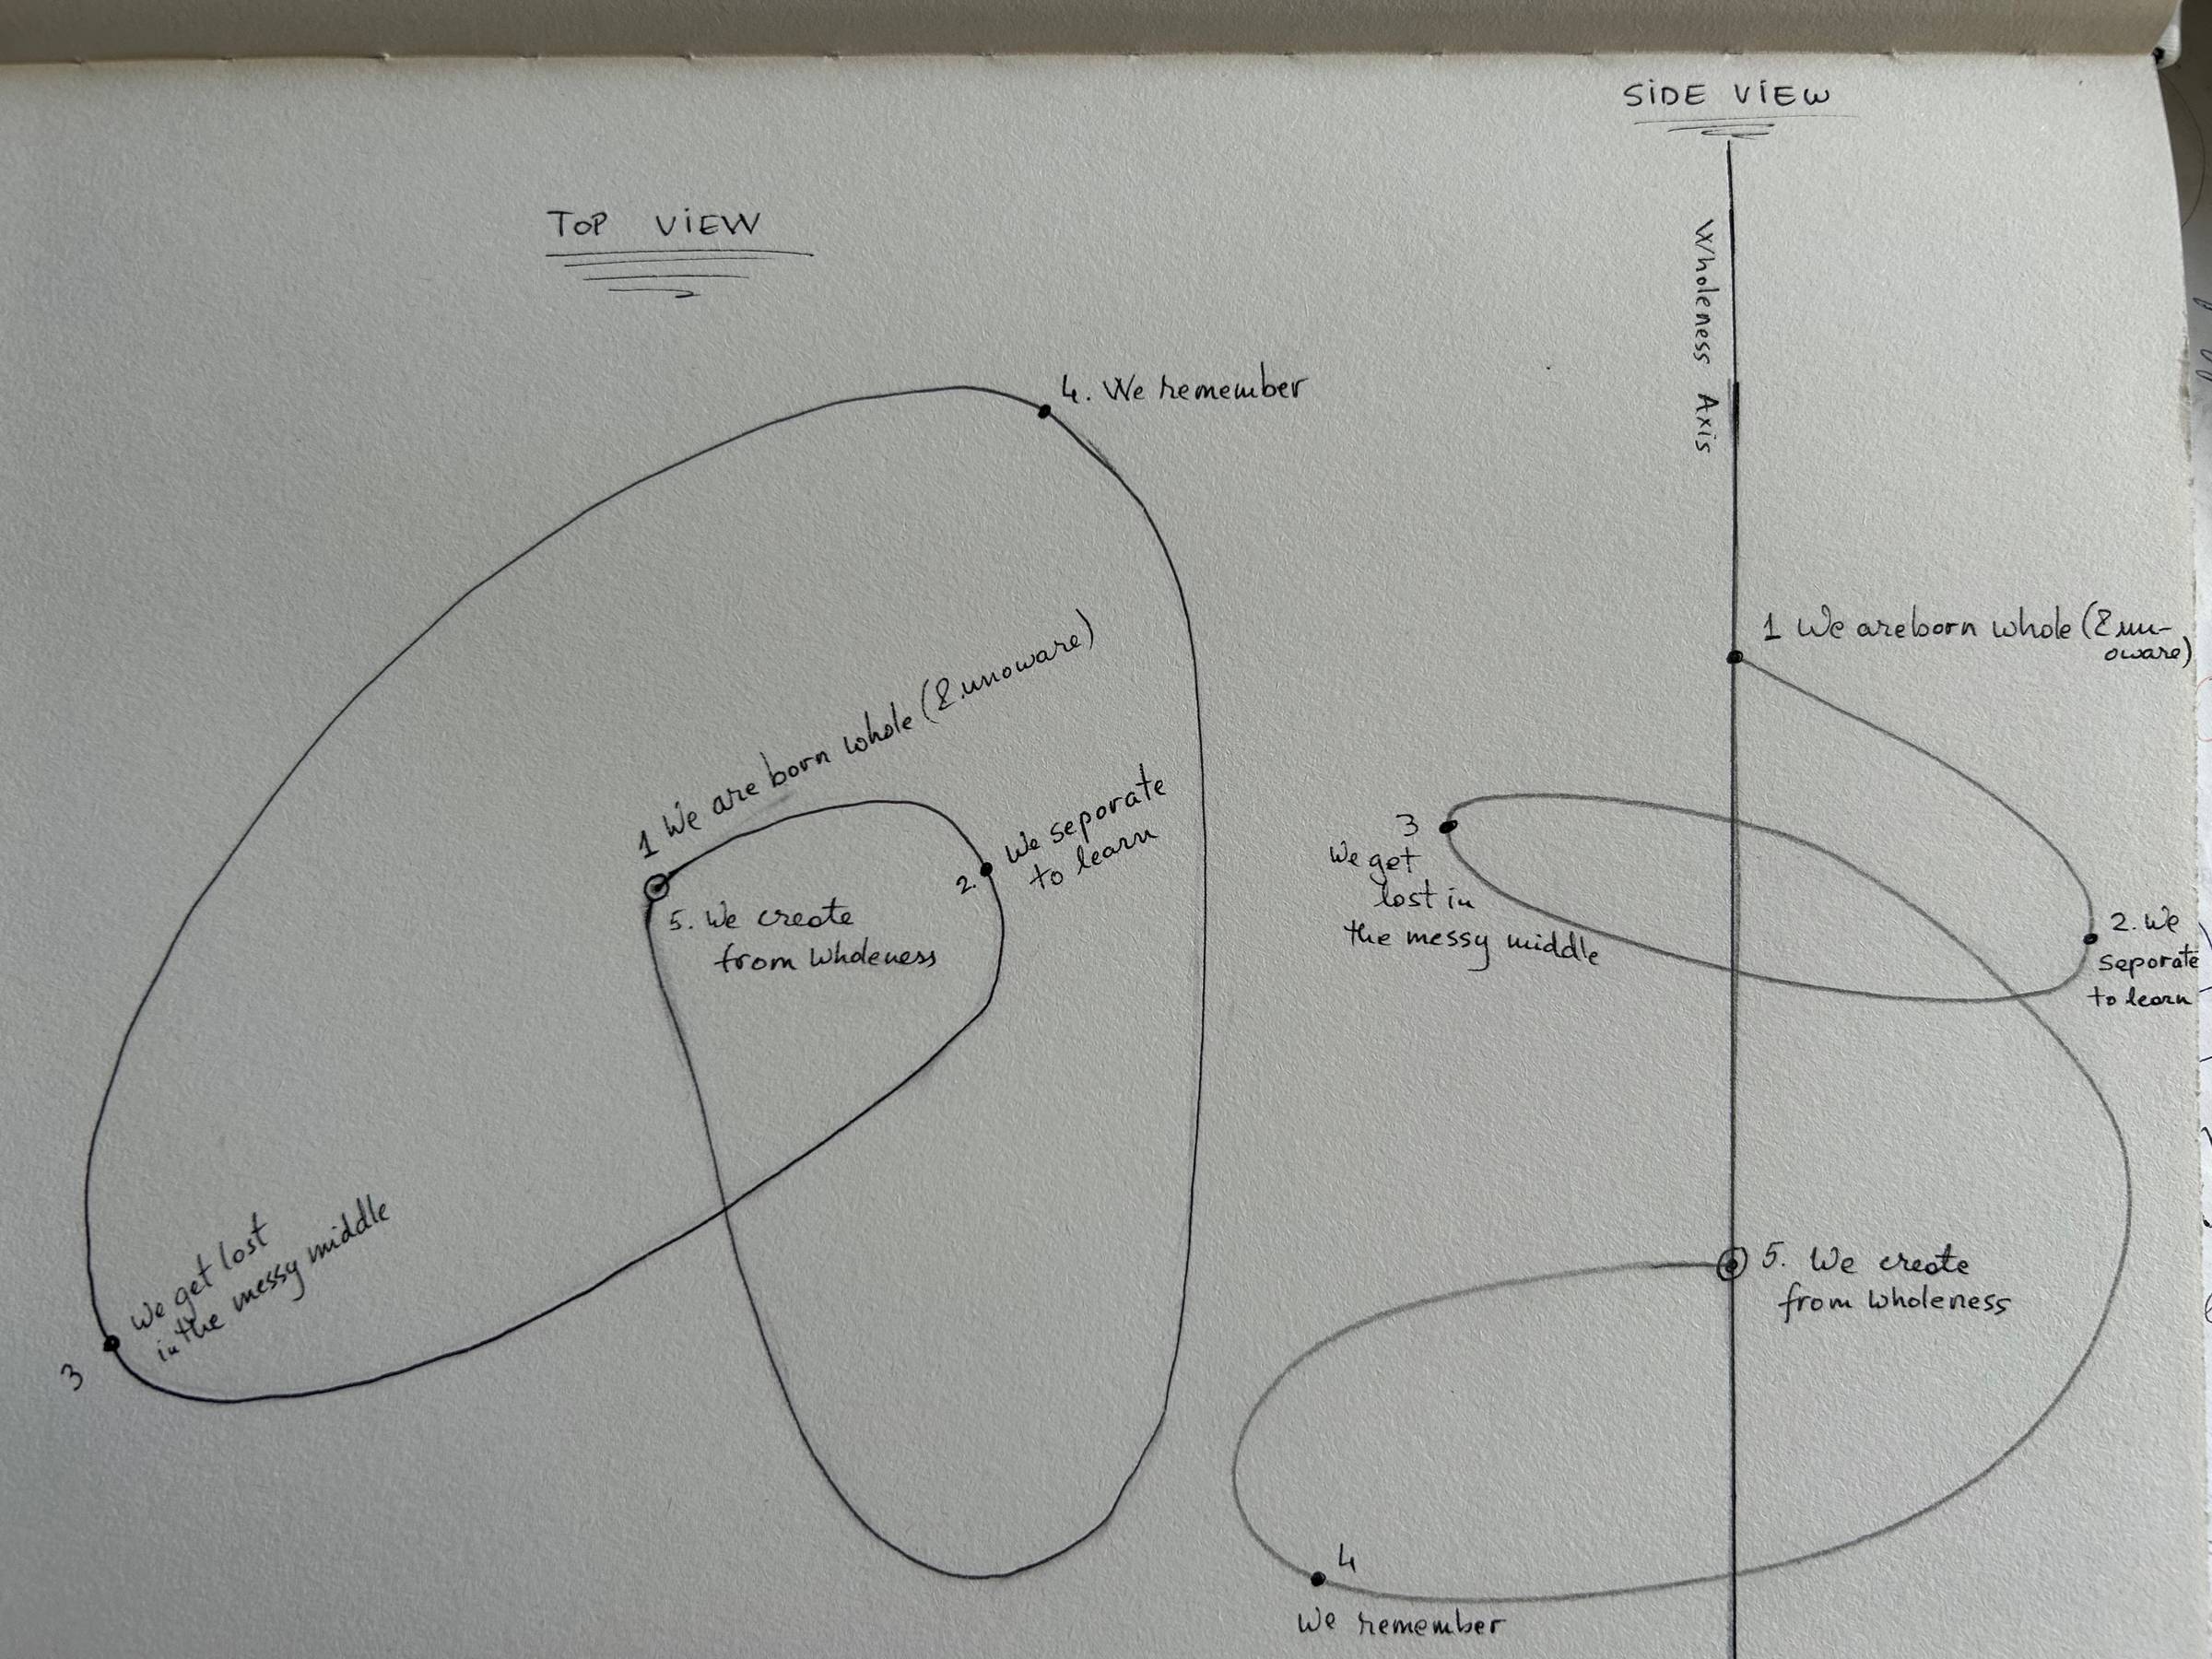 TOP VIEW
4. We remember
1 We are born whole (& unaware)
2. We separate
to learn
5. We create
from wholeness
We get lost
in the messy middle
3
SIDE VIEW
Wholeness Axis
1 We are born whole (& un-
aware)
3
We get
lost in
the messy middle
2. We
separate
to learn
5. We create
from wholeness
4
We remember